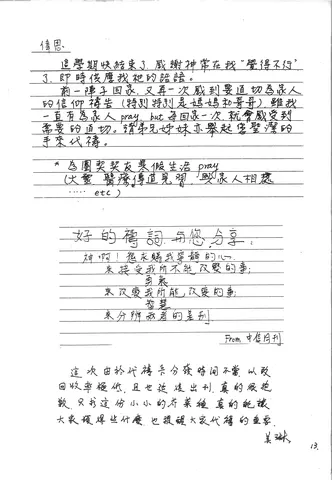 偉恩:
這學期快結束了, 感謝神常在我"覺得不行"
了, 即時供應我祂的話語。
前一陣子回家, 又再一次感到要迫切為家人
的信仰禱告 (特別特別是媽媽和哥哥) 雖我
一直有為家人 pray, but 每回家一次, 就會感受到
需要的迫切。請弟兄姊妹亦舉起聖潔的
手來代禱。
* 為團契契友暑假生活 pray
醫療 見習 與家人相處
····· etc )
好的禱詞與您分享:
神啊! 賜我寧靜的心
來接受我所不能改變的事;
勇氣
來改變我所能改變的事;
智慧
來分辨兩者的差別
From 中信月刊
這次由於代禱卡分發時間不當, 以致
回收率極低, 且也延遲出刊, 真的很抱
歉, 只求這份小小的 真的能讓
大家獲得些什麼, 也提醒大家代禱的重要.
13.